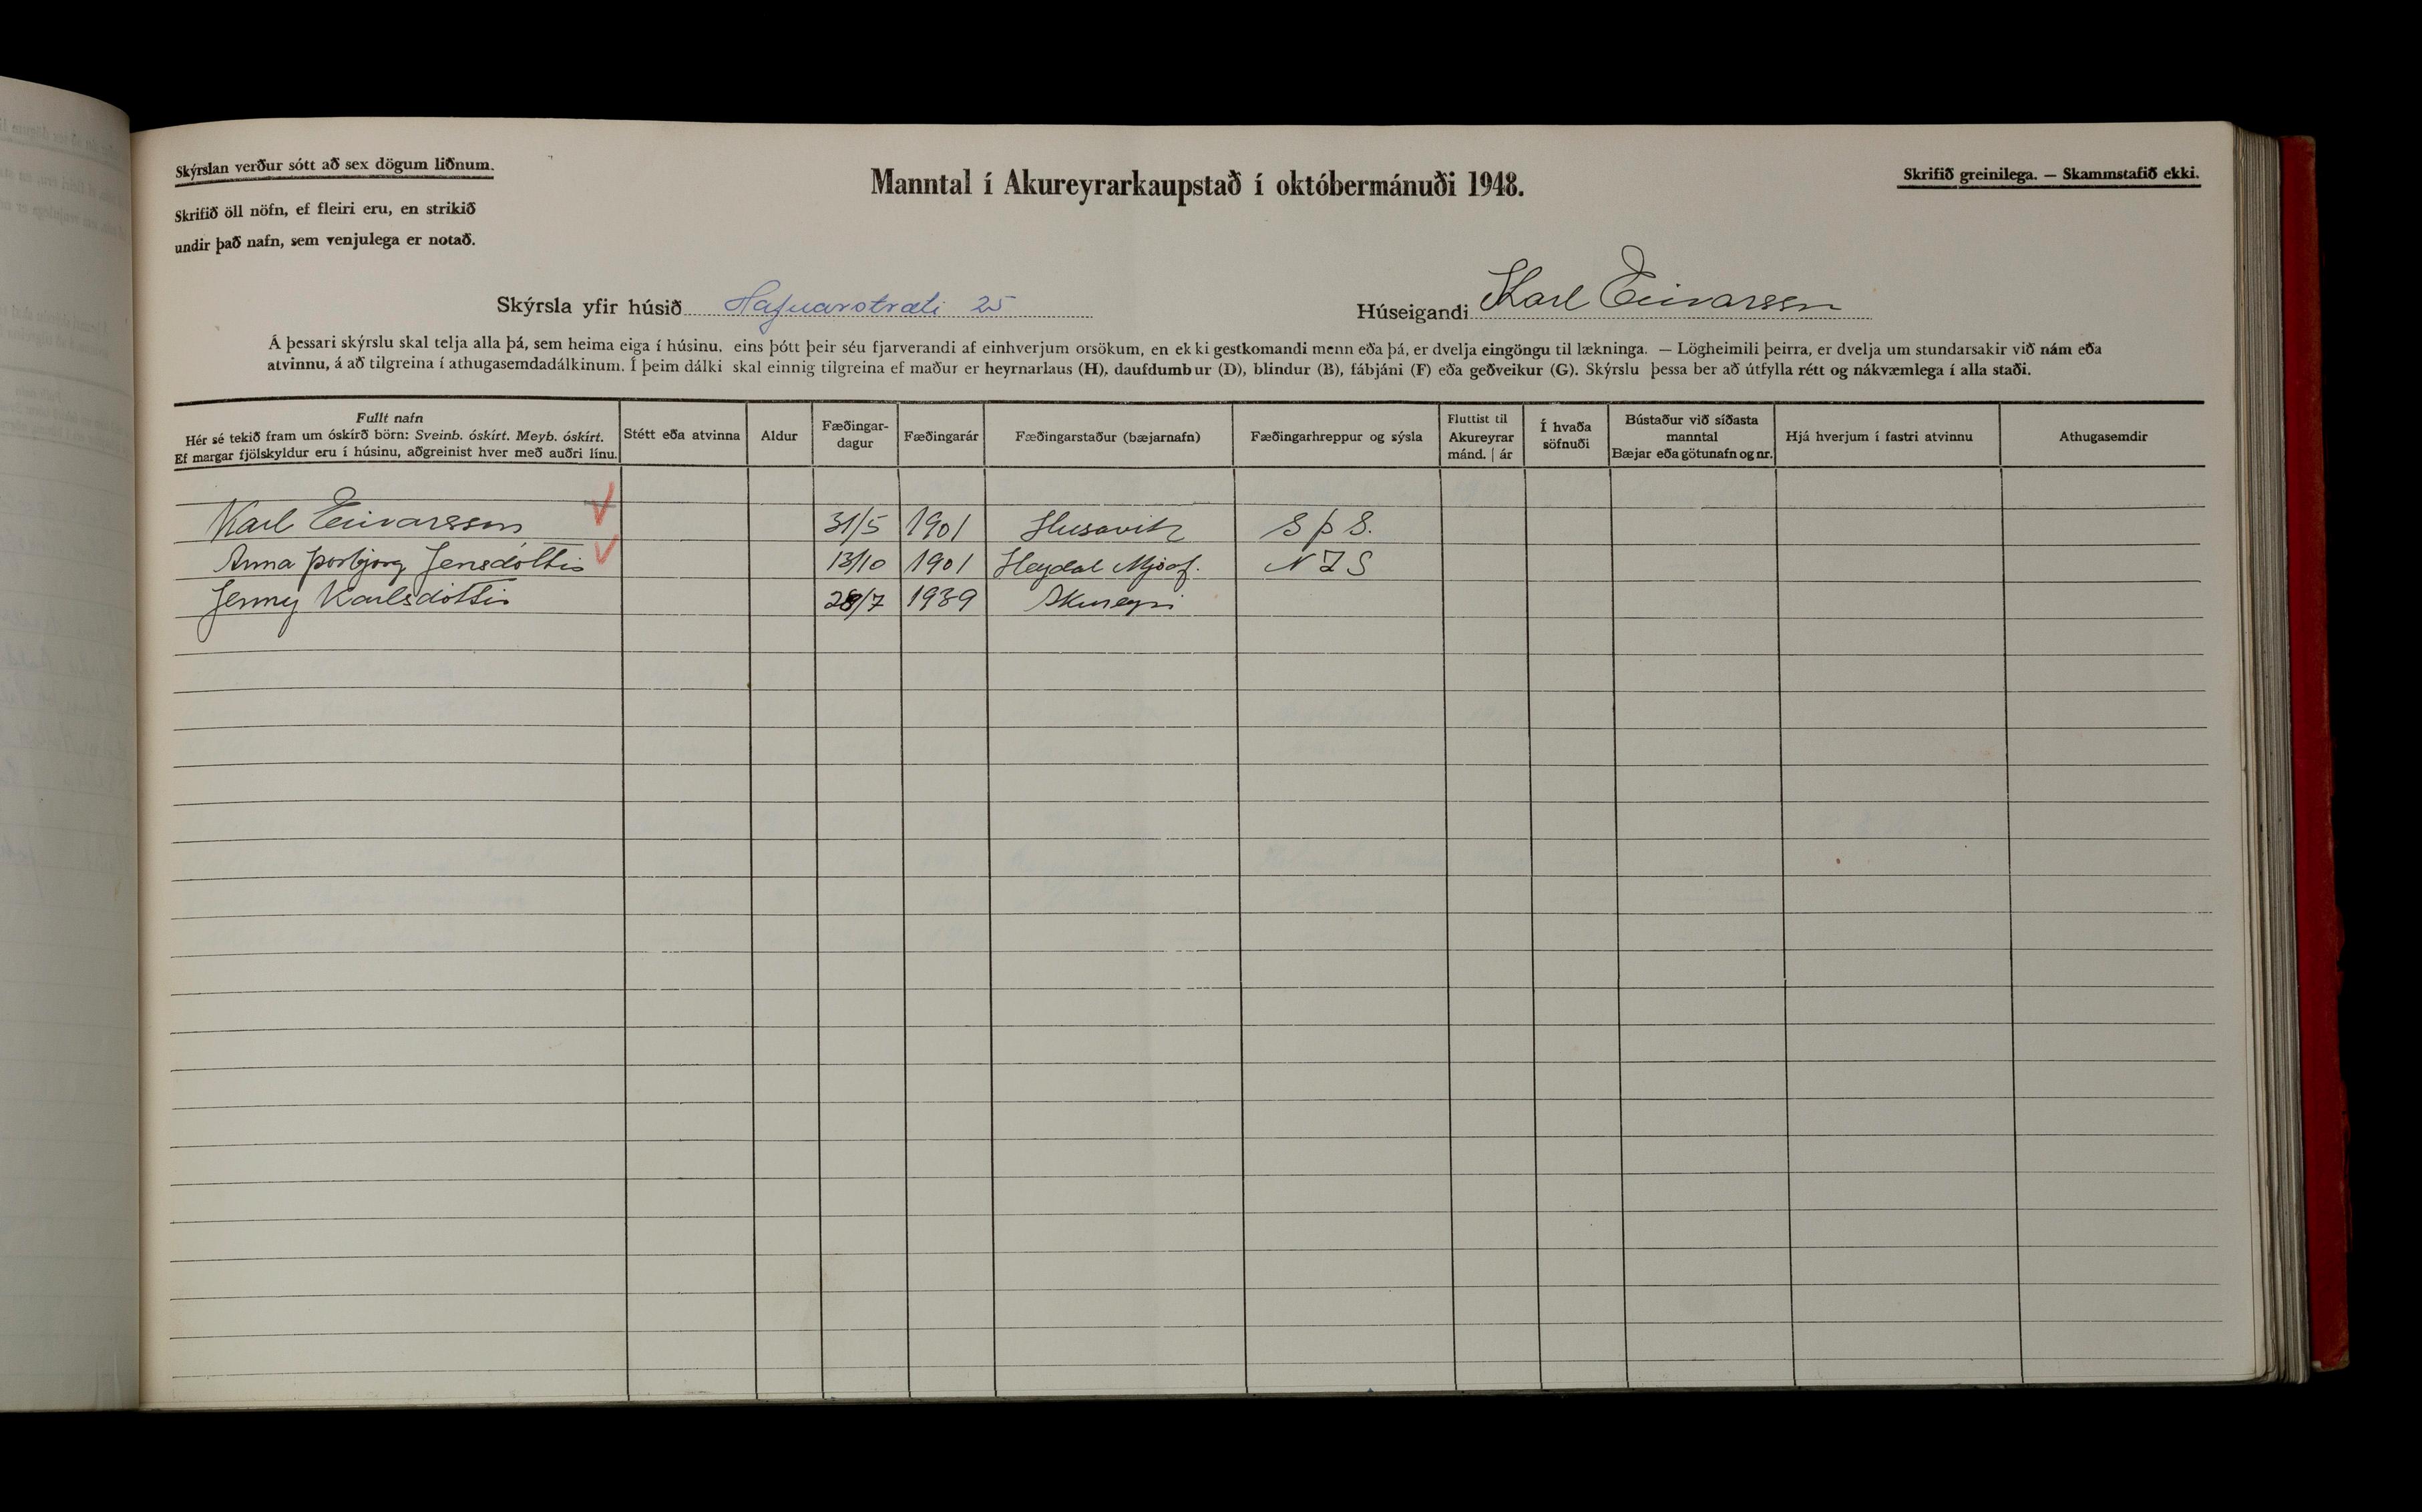 Skýrslan verður sótt að sex dögum liðnum.
Skrifið öll nöfn, ef fleiri eru, en strikið
undir það nafn, sem venjulega er notað.
Manntal í Akureyrarkaupstað í októbermánuði 1948.
Skrifið greinilega. — Skammstafið ekki.
Skýrsla yfir húsið Hafnarstræti 25
Húseigandi Karl Einarsson
Á þessari skýrslu skal telja alla þá, sem heima eiga í húsinu, eins þótt þeir séu fjarverandi af einhverjum orsökum, en ekki gestkomandi menn eða þá, er dvelja eingöngu til lækninga. — Lögheimili þeirra, er dvelja um stundarsakir við nám eða
atvinnu, á að tilgreina í athugasemdadálkinum. Í þeim dálki skal einnig tilgreina ef maður er heyrnarlaus (H), daufdumbur (D), blindur (B), fábjáni (F) eða geðveikur (G). Skýrslu þessa ber að útfylla rétt og nákvæmlega í alla staði.
Fullt nafn
Hér sé tekið fram um óskírð börn: Sveinb. óskírt. Meyb. óskírt.
Ef margar fjölskyldur eru í húsinu, aðgreinist hver með auðri línu.
Stétt eða atvinna
Aldur
Fæðingar-
dagur
Fæðingarár
Fæðingarstaður (bæjarnafn)
Fæðingarhreppur og sýsla
Fluttist til
Akureyrar
mánd. | ár
Í hvaða
söfnuði
Bústaður við síðasta
manntal
Bæjar eða götunafn og nr.
Hjá hverjum í fastri atvinnu
Athugasemdir
Karl Einarsson 31/5 1901 Husavik S Þ S.
Anna Þorbjörg Jensdóttir 13/10 1901 Heydal Mjóaf. N I S
Jenny Karlsdóttir /7 1939 Akureyri